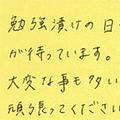 勉強漬けの日
が待っています。
大変な事も多い
頑張ってください